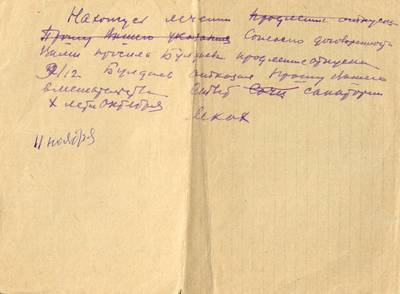 Нахожусь лечении продление отпуска
Прошу Вашего указания Согласно договоренности
Вами просила Булдаева продление отпуска
2/12 Булдаев отказал Прошу Вашего
вмешательства Ответ Сочи санатории
X лет Октября
11 ноября